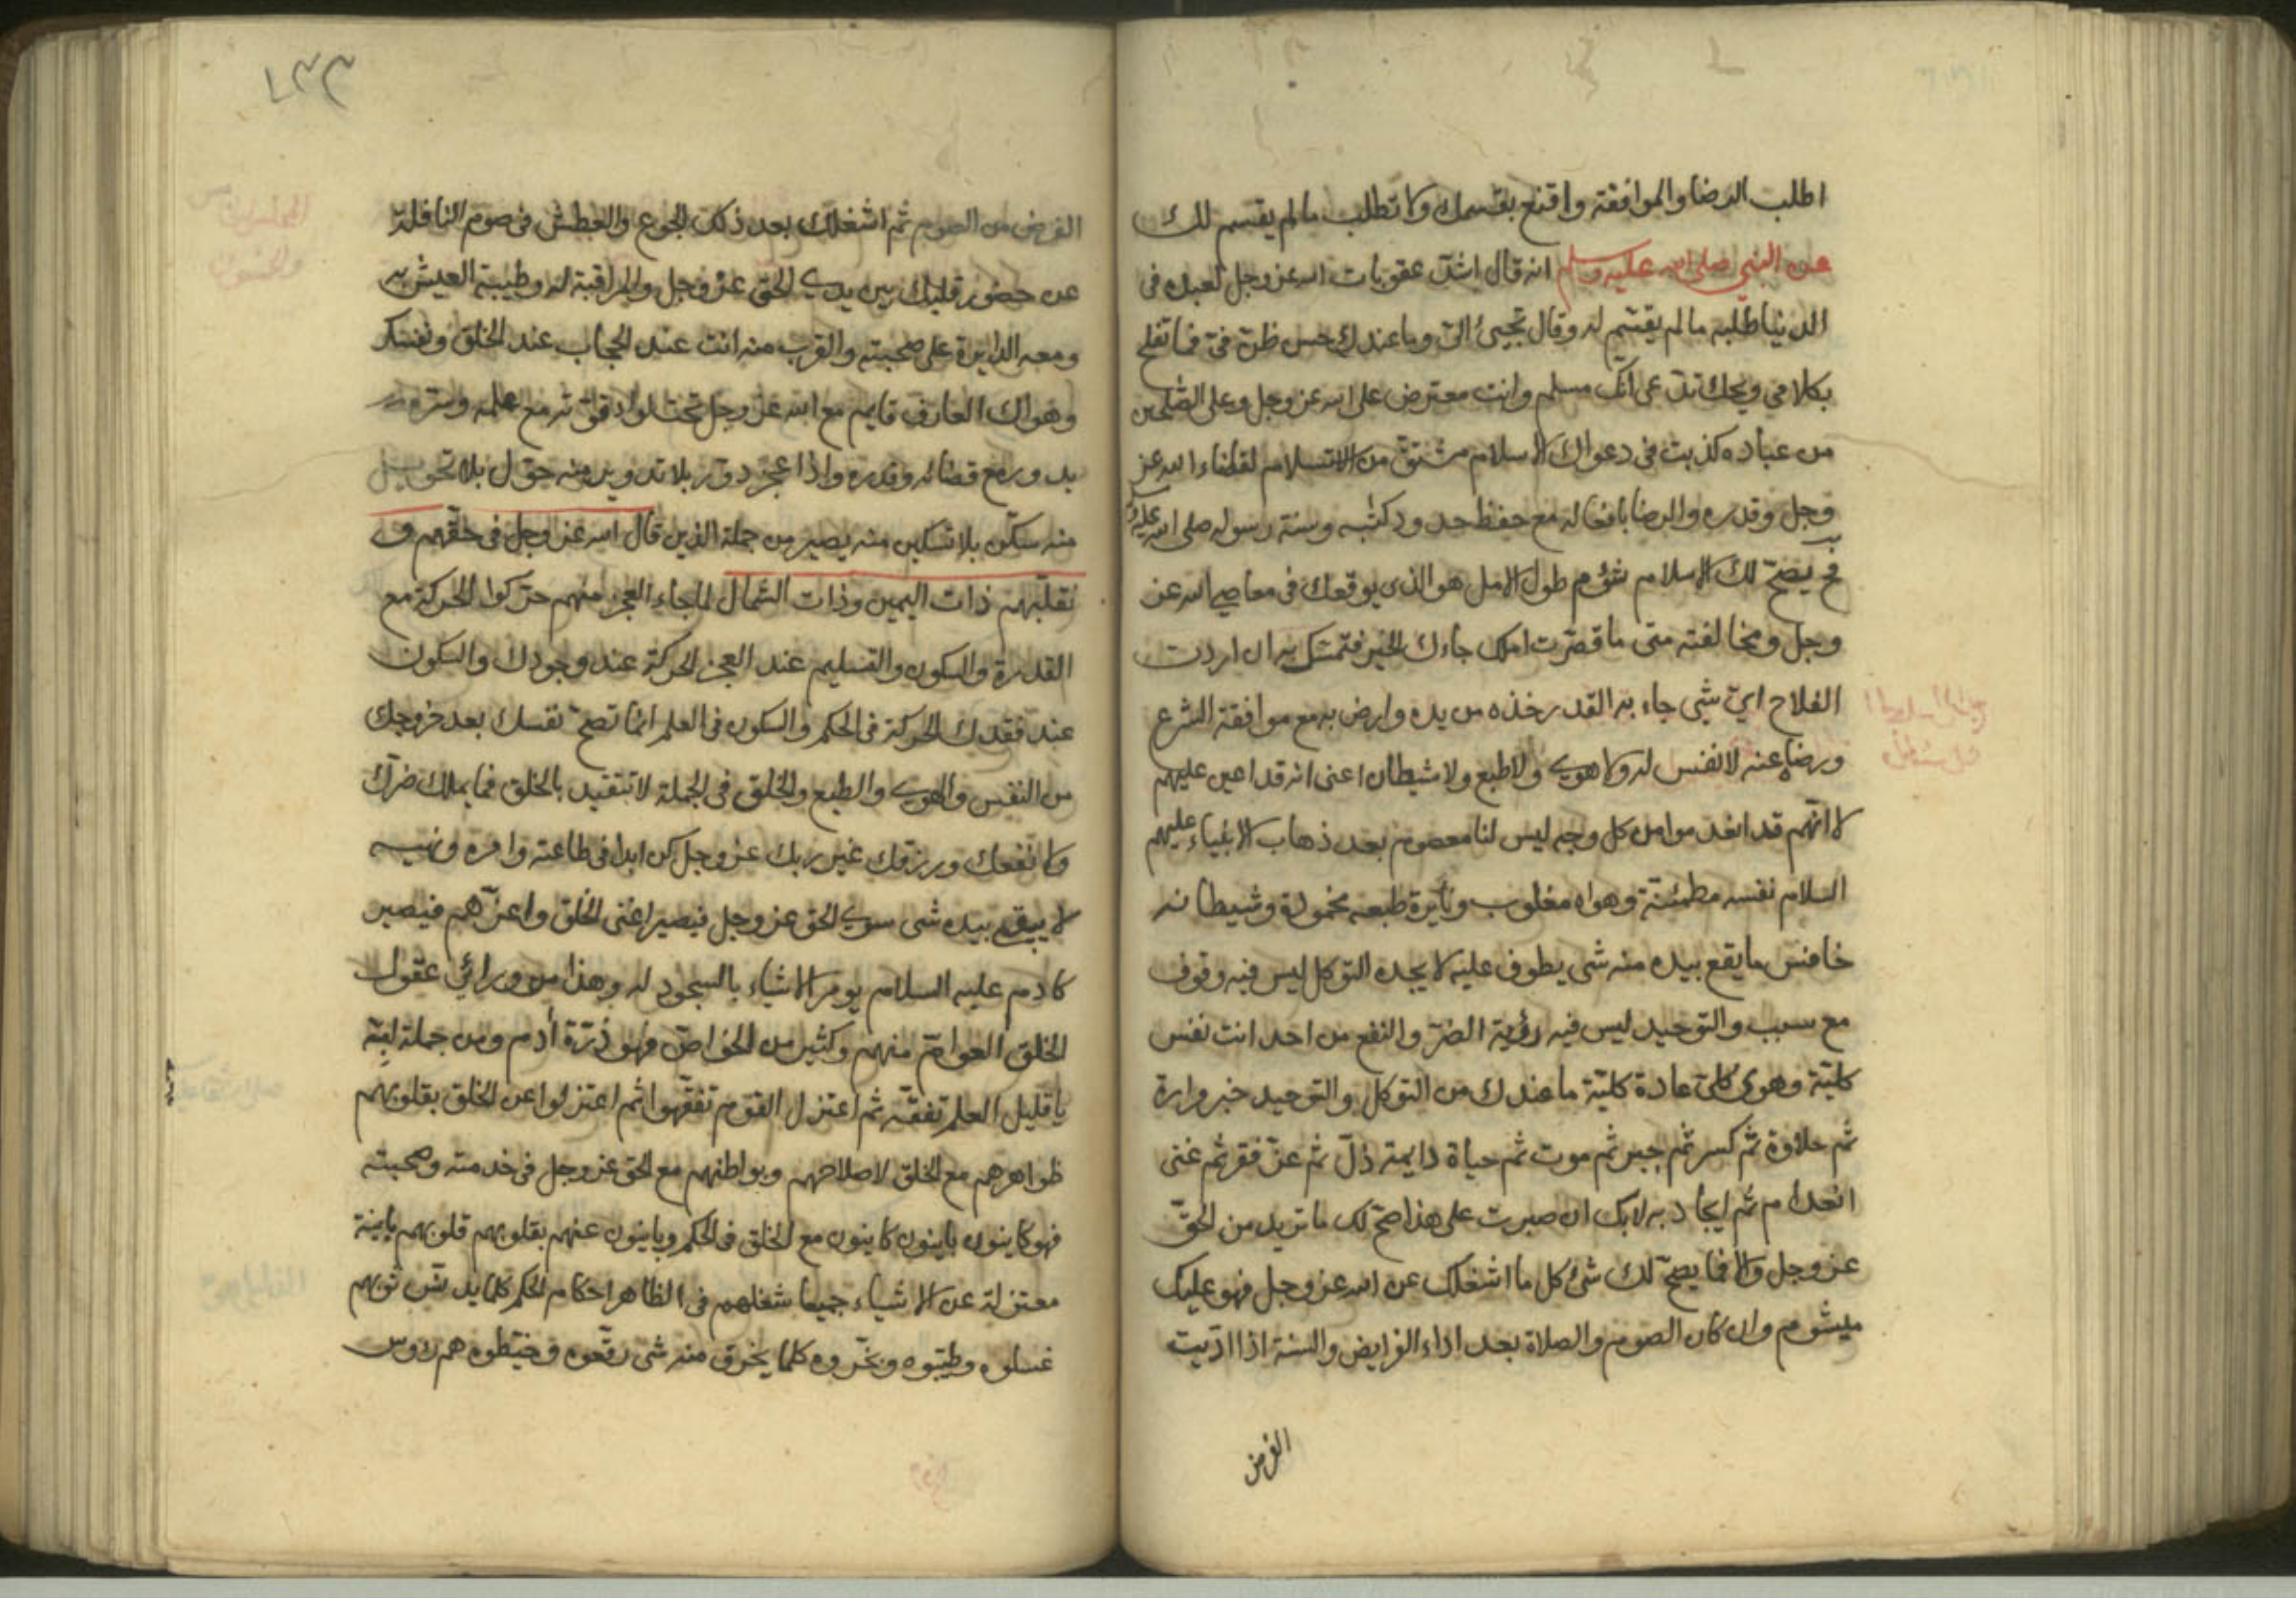 اطلب الرضا والموافقة واقنع بقسمك ولا تطلب ما لم يقسم لك
عن النبي صلى الله عليه وسلم انه قال اشدّ عقوبات الله عز وجل لعبده في
الدنيا طلبه ما لم يقسم له وقال تجيئ اليّ وما عندك حسن ظنّ فيّ فما تفلح
بكلامي ويحك تدّعي انّك مسلم وانت معترض على الله عز وجل وعلى الصّلحين
من عباده كذبت في دعواك الاسلام مشتقّ من الاستسلام لقضاء الله عز
وجل وقدره والرضا بافعاله مع حفظ حدود كتبه وسنة رسوله صلى الله عليه
فح يصحّ لك الاسلام شؤم طول الامل هو الذي يوقعك في معاصي الله عز
وجل ومخالفته متى ما قصّرت املك جاءك الخير فتمسّك به ان اردت
الفلاح ايّ شي جاء به القدر خذه من يده وارض به مع موافقة الشرع
ورضاه عنه لا نفس له ولا هوى ولا طبع ولا شيطان اعنى انه قد اعين عليهم
لا انّهم قد انعدموا من كل وجه ليس لنا معصوم بعد ذهاب الانبياء عليهم
السلام نفسه مطمئنّة وهواه مغلوب ونايرة طبعه مخمودة وشيطانه
خانس ما يقع بيده منه شي يطوف عليه لا يجده التوكل ليس فيه وقوف
مع سبب والتوحيد ليس فيه رؤية الضرّ والنفع من احد انت نفس
كليّة وهوى كليّ عادة كليّة ما عندك من التوكل والتوحيد خبر مرارة
ثم حلاوة ثم كسر ثم جبر ثم موت ثم حياة دايمة ذلّ ثم عزّ فقر ثم غنى
انعدام ثم ايجاد به لا بك ان صبرت على هذا صحّ لك ما تريد من الحقّ
عز وجل والا فما يصحّ لك شئ كل ما اشغلك عن الله عز وجل فهو عليك
ميشوم وان كان الصوم والصلاة بعد اداء الفرايض والسنة اذا ادّيت
الفرض
١٣٣
الفرض من الصوم ثم اشغلك بعد ذلك الجوع والعطش في صوم النافلة
عن حضور قلبك بين يدي الحق عز وجل والمراقبة له وطيبة العيش به
ومعه الدايرة على صحبته والقرب منه انت عند الحجاب عند الخلق ونفسك
وهواك العارف قايم مع الله عز وجل تحت لواء مع علمه وسرّه
يدور مع قضائه وقدره واذا عجز دوّر بلا تدوير منه حوّل بلا تحويل
منه سكّن بلا تسكين منه يصير من جملة الذين قال الله عز وجل في حقّهم و
نقلّبهم ذات اليمين وذات الشمال لما جاء العجز منهم حرّكوا الحركة مع
القدرة والسكون والتسليم عند العجز الحركة عند وجودك والسكون
عند فقدك الحركة في الحكم والسكون في العلم انما تصحّ نفسك بعد خروجك
من النفس والهوى والطبع والخلق في الجملة لا تتقيد بالخلق فما يملك ضرّك
ولا نفعك ورزقك غير ربك عز وجل كن ابدا في طاعته وامره ونهيه
لا يبقى بيده شي سوى الحق عز وجل فيصير اغنى الخلق واعزّهم فيصير
كادم عليه السلام يومر الاشياء بالسجود له وهذا من ورائي عقول
الخلق العوامّ منهم وكثير من الخواصّ فهو ذرّة أدم ومن جملة لبّه
يا قليل العلم تفقّه ثم اعتزل القوم تفقّهوا ثم اعتزلوا عن الخلق بقلوبهم
ظواهرهم مع الخلق لاصلاحهم وبواطنهم مع الحق عز وجل في خدمته وصحبته
فهو كاينون باينون كاينون مع الخلق في الحكم وباينون عنهم بقلوبهم قلوبهم باينة
معتزلة عن الاشياء جميعا شغلهم في الظاهر احكام الحكم كلما يدنّس ثوبهم
غسلوه وطيّبوه وبخّروه كلما يخرق منه شي رقّعوه وخيّطوه هم رؤس